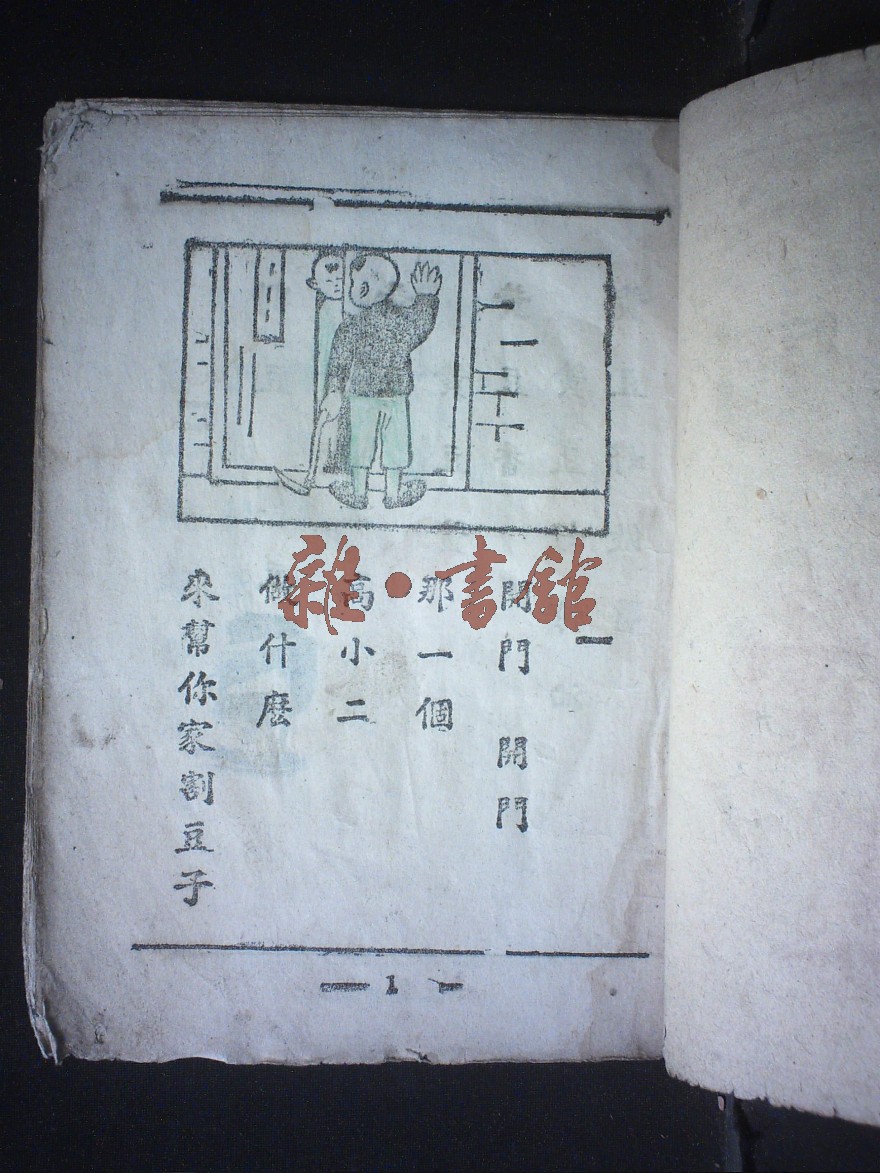 一
開門 開門
那一個
高小二
做什麼
來幫你家割豆子
— 1 —
雜·書館